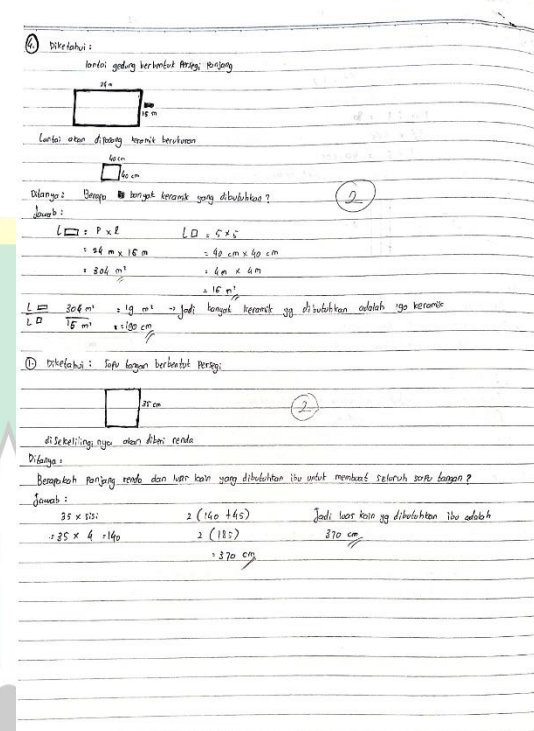 4. Diketahui :
lantai gedung berbentuk Persegi Panjang
24 m
16 m
Lantai akan dipasang keramik berukuran
40 cm
40 cm
Ditanya : Berapa banyak keramik yang dibutuhkan ?
2
Jawab :
L = P x l L = s x s
= 24 m x 16 m = 40 cm x 40 cm
= 304 m² = 4m x 4m
= 16 m²
L 304 m² = 19 m² → Jadi banyak keramik yg dibutuhkan adalah 190 keramik
L 16 m² = 190 cm
1. Diketahui : Sapu tangan berbentuk Persegi
35 cm
2
disekelilingnya akan diberi renda
Ditanya :
Berapakah Panjang renda dan luas kain yang dibutuhkan ibu untuk membuat seluruh sapu tangan ?
Jawab :
35 x sisi 2 (140 + 45) Jadi luas kain yg dibutuhkan ibu adalah
= 35 x 4 = 140 2 (185) 370 cm
= 370 cm